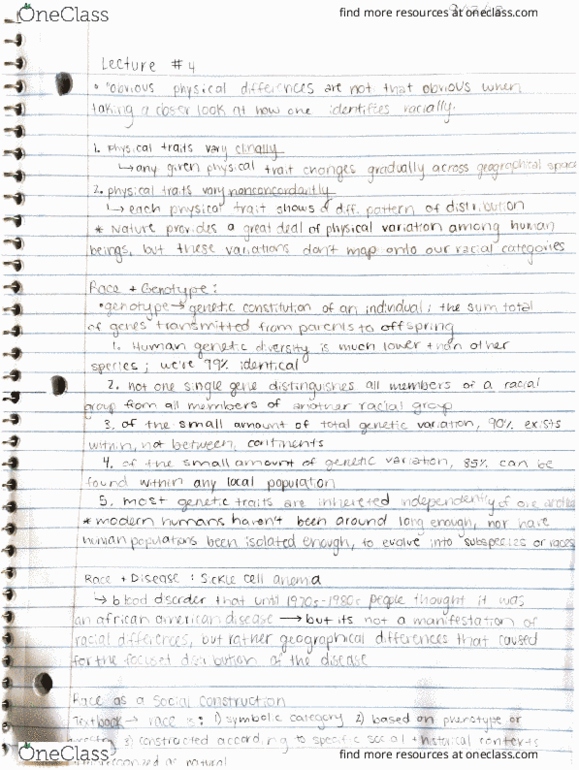 OneClass
find more resources at oneclass.com
Lecture #4
• "obvious physical differences are not that obvious when
taking a closer look at how one identifies racially.
1. physical traits vary clinally
↳ any given physical trait changes gradually across geographical space
2. physical traits vary nonconcordantly
↳ each physical trait shows a diff. pattern of distribution
* Nature provides a great deal of physical variation among human
beings, but these variations don't map onto our racial categories
Race + Genotype:
• genotype → genetic constitution of an individual; the sum total
of genes transmitted from parents to offspring
1. Human genetic diversity is much lower than other
species; we're 99% identical
2. not one single gene distinguishes all members of a racial
group from all members of another racial group
3. of the small amount of total genetic variation, 90% exists
within, not between, continents
4. of the small amount of genetic variation, 85% can be
found within any local population
5. most genetic traits are inhereted independently of one another
* modern humans haven't been around long enough, nor have
human populations been isolated enough, to evolve into subspecies or races
Race + Disease: Sickle cell anemia
↳ blood disorder that until 1970s-1980s people thought it was
an african american disease → but its not a manifestation of
racial differences, but rather geographical differences that caused
for the focused distribution of the disease
Race as a Social Construction
Textbook → race is: 1) symbolic category 2) based on phenotype or
ancestry 3) constructed according to specific social + historical contexts
recognized as natural
OneClass
find more resources at oneclass.com